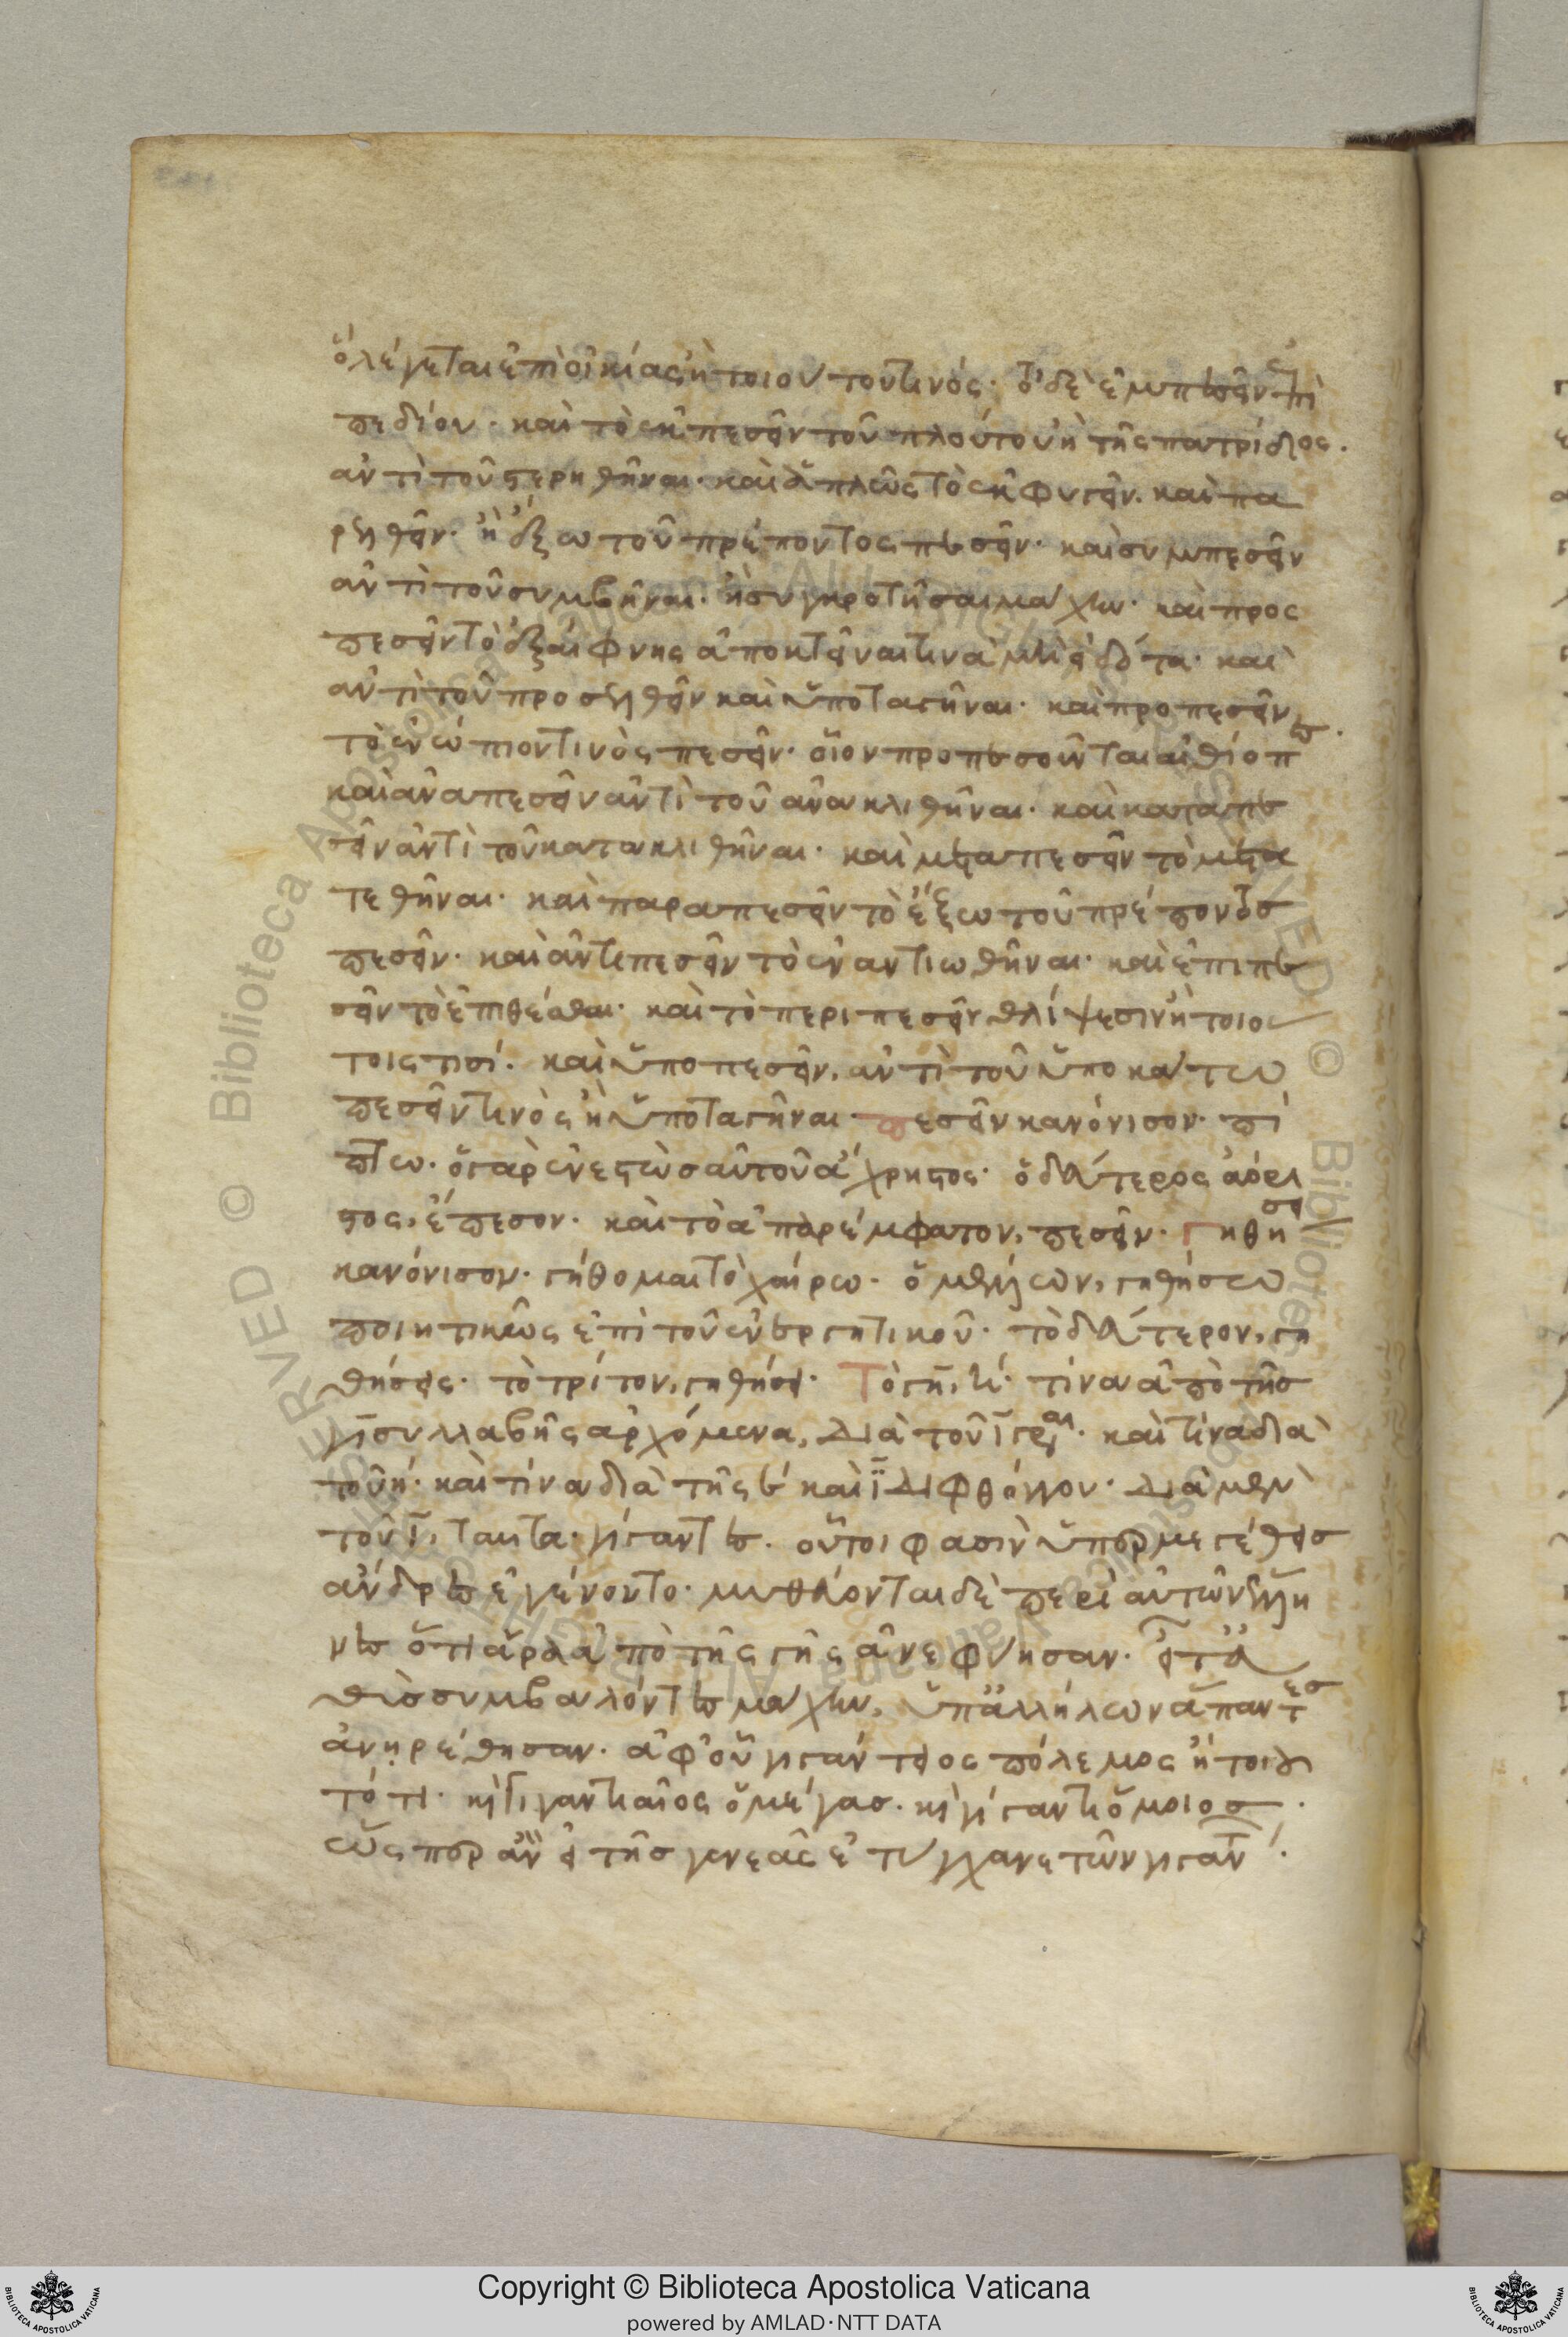 ὃ λέγεται ἐπὶ οἰκίας ἢ τοιούτου τινός· τὸ δὲ ἐμπεσεῖν ἐπὶ
πεδίου· καὶ τὸ ἐκπεσεῖν τοῦ πλούτου ἢ τῆς πατρίδος·
ἀντὶ τοῦ στερηθῆναι· καὶ ἁπλῶς τὸ ἐκφυγεῖν· καὶ πα
ρελθεῖν· ἢ ἔξω τοῦ πρέποντος πεσεῖν· καὶ συμπεσεῖν
ἀντὶ τοῦ συμβῆναι· ἢ συγκροτῆσαι μάχην· καὶ προσ
πεσεῖν τὸ ἐξαίφνης ἀποκτεῖναι τινὰ μὴ εἰδότα· καὶ
ἀντὶ τοῦ προσελθεῖν καὶ ὑποταγῆναι· καὶ προπεσεῖν
τὸ ἐνώπιον τινὸς πεσεῖν· οἷον προπεσοῦνται αἰθίοπες·
καὶ ἀναπεσεῖν ἀντὶ τοῦ ἀνακλιθῆναι· καὶ καταπε
σεῖν ἀντὶ τοῦ κατακλιθῆναι· καὶ μεταπεσεῖν τὸ μετα
τεθῆναι· καὶ παραπεσεῖν τὸ ἔξω τοῦ πρέποντος
πεσεῖν· καὶ ἀντιπεσεῖν τὸ ἐναντιωθῆναι· καὶ ἐπιπε
σεῖν τὸ ἐπιθέσθαι· καὶ τὸ περιπεσεῖν θλίψεσιν ἢ τοιού
τοις τισί· καὶ ὑποπεσεῖν, ἀντὶ τοῦ ὑποκάτω
πεσεῖν τινὸς ἢ ὑποταγῆναι· πεσεῖν κανόνισον· πί
πτω· ὁ γὰρ ἐνεστὼς αὐτοῦ ἄχρηστος· ὁ δεύτερος ἀόρι
στος, ἔπεσον· καὶ τὸ ἀπαρέμφατον, πεσεῖν· Γηθήσει
κανόνισον· γήθομαι τὸ χαίρω· ὁ μέλλων, γηθήσω
ποιητικῶς ἐπὶ τοῦ ἐνεργητικοῦ· τὸ δεύτερον, γη
θήσεις· τὸ τρίτον, γηθήσει· Τὸ γη, η· τίνα ἀπὸ τῆς
γι συλλαβῆς ἀρχόμενα, διὰ τοῦ ι γράφεται· καὶ τίνα διὰ
τοῦ η· καὶ τίνα διὰ τῆς ε καὶ ι διφθόγγου· διὰ μὲν
τοῦ ι, ταῦτα· γίγαντες· οὗτοι φασὶν ὑπερμεγέθεις
ἄνδρες ἐγένοντο· μυθεύονται δὲ περὶ αὐτῶν ἕλλη
νες ὅτι ἄρα ἀπὸ τῆς γῆς ἀνεφύησαν· εἶτα
θεοῖς συμβαλόντες μάχην, ὑπ' ἀλλήλων ἅπαντες
ἀνῃρέθησαν· ἀφ' οὗ γιγάντειος πόλεμος ἤτοι
τό τι· καὶ γιγαντιαῖος ὁ μέγας· καὶ γίγαντι ὅμοιος·
ὥσπερ ἂν εἰ τῆς γενεᾶς ἐτύγχανε τῶν γιγάντων·